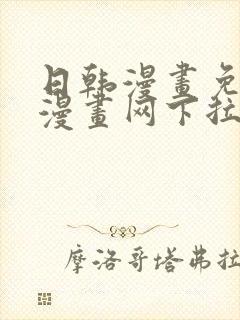 日韩漫畫免
漫畫网下拉
摩洛哥塔弗拉